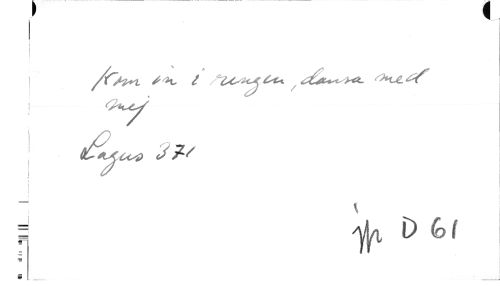 Kom in i ringen, dansa med
mej
Lagus 371
D 61